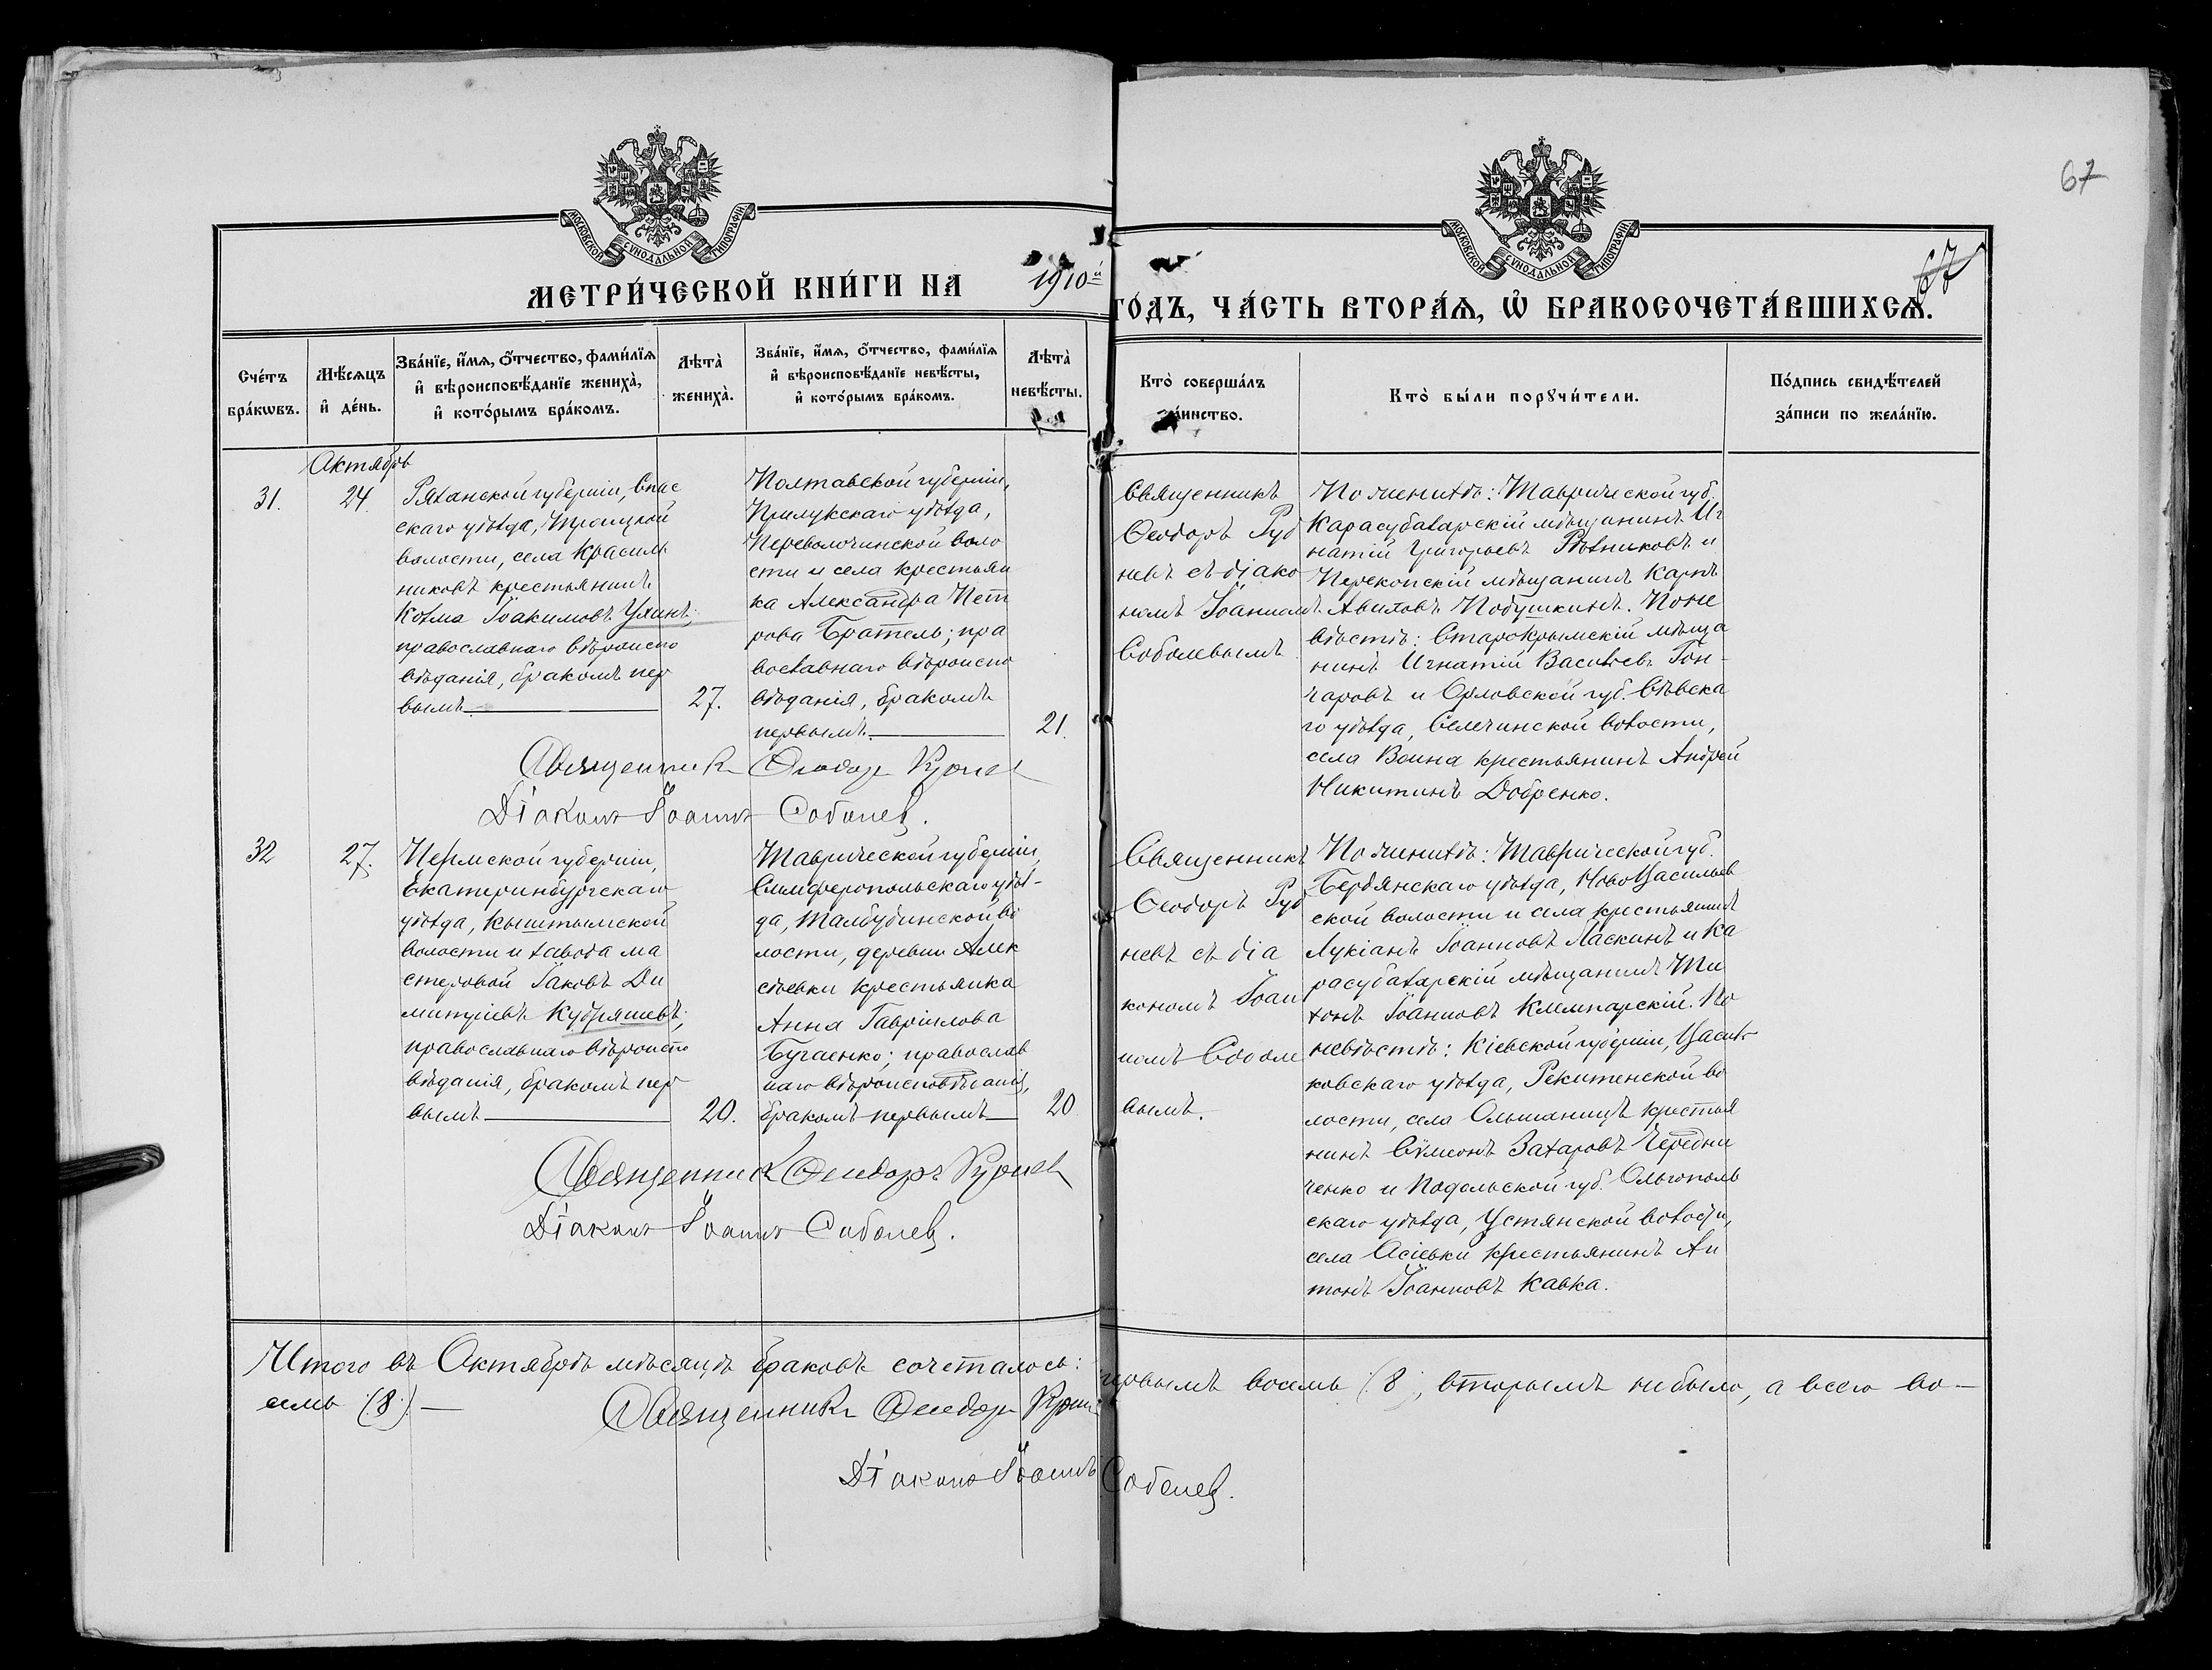 67
67
МОСКОВСКОЙ СѴНОДАЛЬНОЙ ТИПОГРАФІИ
МОСКОВСКОЙ СѴНОДАЛЬНОЙ ТИПОГРАФІИ
МЕТРИ́ЧЕСКОЙ КНИ́ГИ НА 1910й ГО́ДЪ, ЧА́СТЬ ВТОРА́Ѧ, Ѽ БРАКОСОЧЕТА́ВШИХСѦ.
Сче́тъ
бра́кωвъ.
Мѣ́сѧцъ
и҆ де́нь.
Зва́нїе, и҆́мѧ, ѻ҆́тчество, фами́лїѧ
и҆ вѣроисповѣ́данїе жениха̀,
и҆ кото́рымъ бра́комъ.
Лѣта̀
жениха̀.
Зва́нїе, и҆́мѧ, ѻ҆́тчество, фами́лїѧ
и҆ вѣроисповѣ́данїе невѣ́сты,
и҆ кото́рымъ бра́комъ.
Лѣта̀
невѣ́сты.
Кто̀ соверша́лъ
та́инство.
Кто̀ бы́ли порꙋчи́тели.
По́дпись свидѣ́телей
за́писи по жела́нїю.
Октябрь
31.
24.
Рязанской губерніи, Спас
скаго уѣзда, Троицкой
волости, села Красиль
никовъ крестьянинъ
Козма Іоакимовъ Ухинъ;
православнаго вѣроиспо
вѣданія, бракомъ пер
вымъ.
27.
Полтавской губерніи,
Прилукскаго уѣзда,
Переволочинской воло
сти и села крестьян
ка Александра Пет
рова Братель; пра
вославнаго вѣроиспо
вѣданія, бракомъ
первымъ.
21.
Священникъ
Ѳеодоръ Руд
невъ съ діако
номъ Іоанномъ
Соболевымъ
По женихѣ: Таврической губ.
Карасубазарскій мѣщанинъ Иг
натій Григорьевъ Рѣзниковъ и
Перекопскій мѣщанинъ Карпъ
Авиловъ Подушкинъ. По не
вѣстѣ: Старокрымскій мѣща
нинъ Игнатій Васильевъ Гон-
чаровъ и Орловской губ. Сѣвска
го уѣзда, Селечинской волости,
села Воина крестьянинъ Андрей
Никитинъ Добренко.
Священникъ Ѳеодоръ Руднев
Діаконъ Іоаннъ Соболев.
32
27.
Пермской губерніи,
Екатеринбургскаго
уѣзда, Кыштымской
волости и завода ма
стеровой Іаковъ Ди
митріевъ Кудряшевъ;
православнаго вѣроиспо
вѣданія, бракомъ пер
вымъ
20.
Таврической губерніи,
Симферопольскаго уѣз-
да, Табулдинской во
лости, деревни Алек
сѣевки крестьянка
Анна Гавріилова
Бугаенко; православ
наго вѣроисповѣданія,
бракомъ первымъ
20
Священникъ
Ѳеодоръ Руд
невъ съ діа
кономъ Іоан
номъ Соболе
вымъ.
По женихѣ: Таврической губ.
Бердянскаго уѣзда, Ново Васильев
ской волости и села крестьянинъ
Лукіанъ Іоанновъ Ласкинъ и Ка
расубазарскій мѣщанинъ Ти
хонъ Іоанновъ Клемпарскій. По
невѣстѣ: Кіевской губерніи, Василь
ковскаго уѣзда, Рокитенской во
лости, села Ольшаницъ крестья
нинъ Сѵмеонъ Захаровъ Чередни
ченко и Подольской губ. Ольгополь
скаго уѣзда, Устянской волости,
села Осіевки крестьянинъ Ан
тонъ Іоанновъ Кавка.
Священникъ Ѳеодоръ Руднев
Діаконъ Іоаннъ Соболев.
Итого въ Октябрѣ мѣсяцѣ браковъ сочеталось: первымъ восемь (8), вторымъ не было, а всего во-
семь (8) —
Священникъ Ѳеодоръ Руднев
Діаконъ Іоаннъ Соболев.